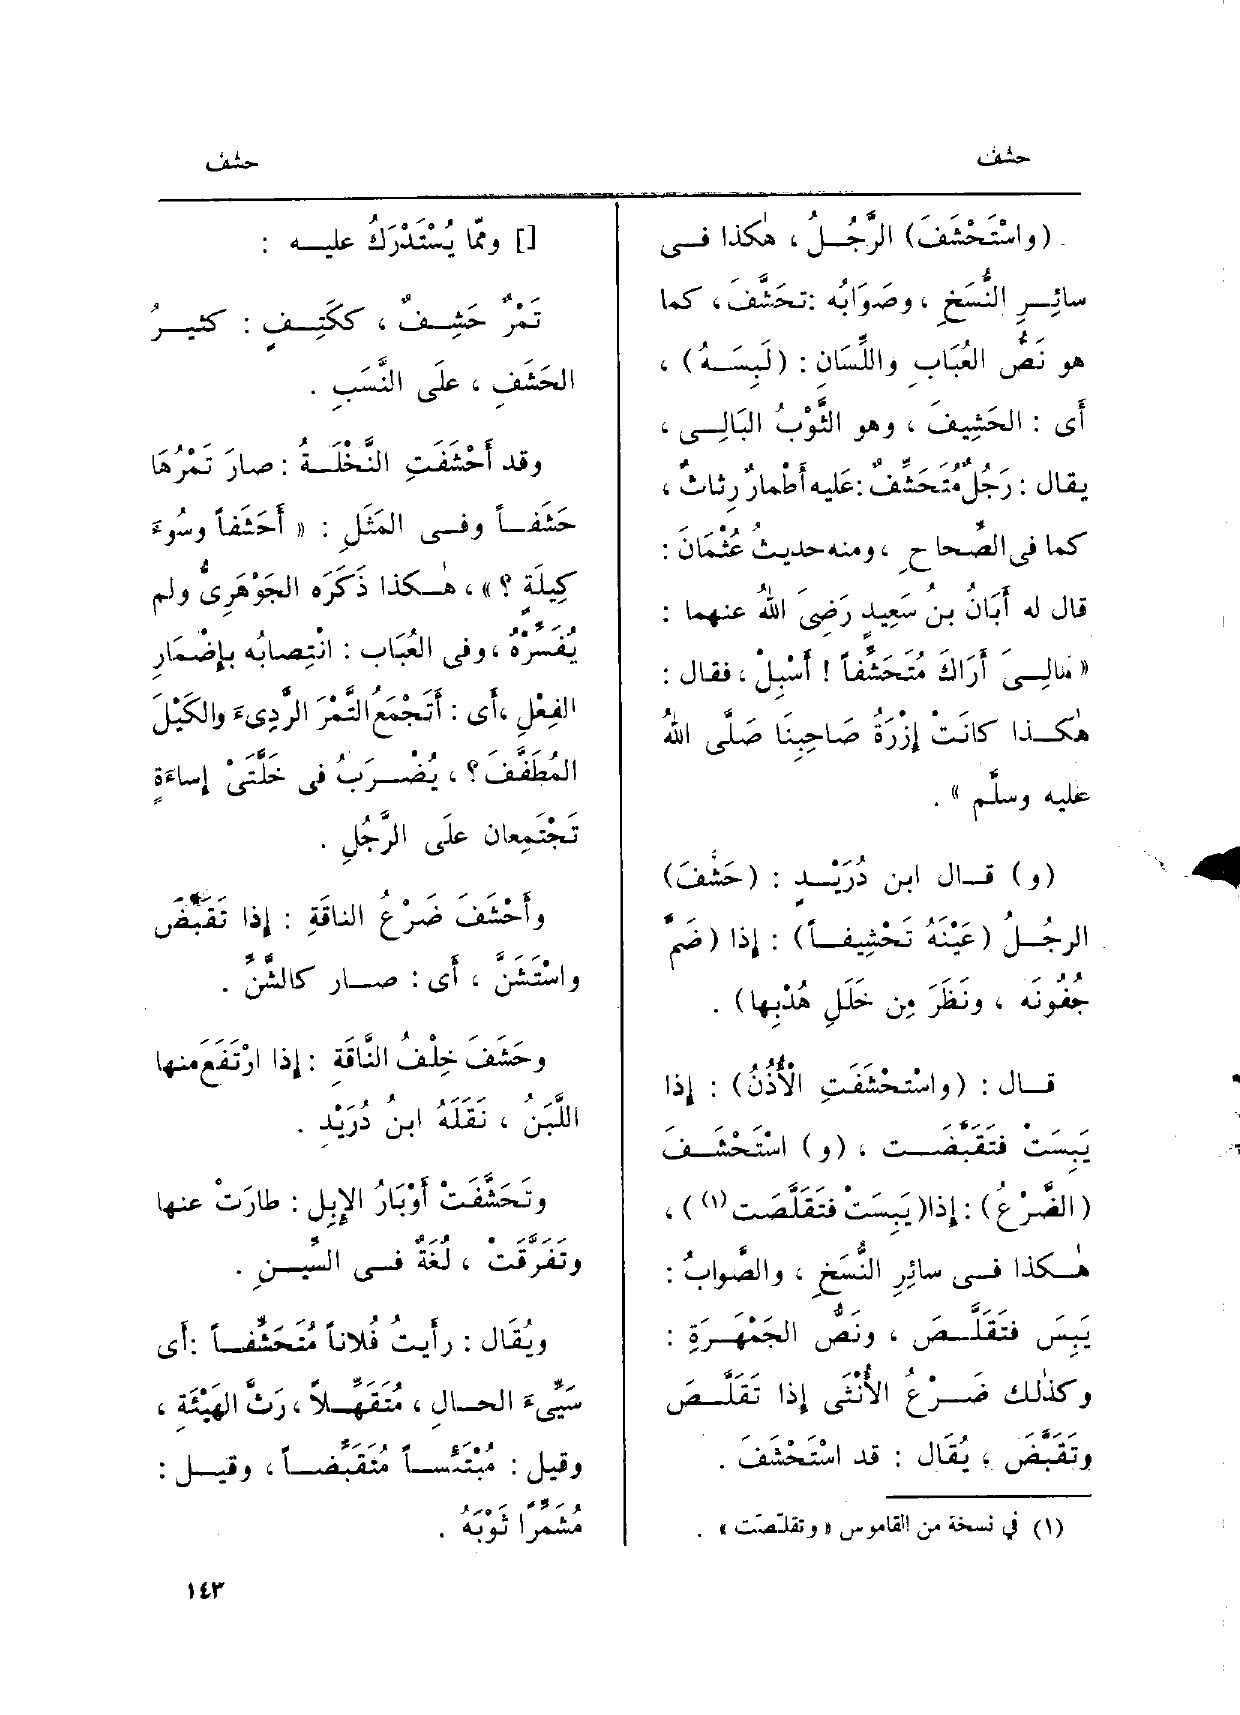 حشف
حشف
(واسْتَحْشَفَ) الرَّجُلُ ، هٰكذا فى
سائِرِ النُّسَخِ ، وصَوَابُه : تحَشَّفَ ، كما
هو نَصُّ العُبَابِ واللِّسَانِ : (لَبِسَهُ) ،
أَى : الحَشِيفَ ، وهو الثَّوْبُ البَالِى ،
يقال : رَجُلٌ مُتَحَشِّفٌ : عَليه أَطْمارٌ رِثاثٌ ،
كما فى الصِّحاحِ ، ومنه حديثُ عُثْمَانَ :
قال له أَبَانُ بنُ سَعِيدٍ رَضِىَ اللهُ عنهما :
« مَالِىَ أَرَاكَ مُتَحَشِّفاً ! أَسْبِلْ ، فقال :
هٰكذا كانَتْ إِزْرَةُ صَاحِبِنَا صَلَّى اللهُ
عليه وسلَّم » .
(و) قال ابن دُرَيْدٍ : (حَشَّفَ)
الرجُلُ (عَيْنَهُ تَحْشِيفاً) : إِذا (ضَمَّ
جُفُونَه ، ونَظَرَ مِن خَلَلِ هُدْبِها) .
قال : (واسْتحْشَفَتِ الْأُذُنُ) : إِذا
يَبِسَتْ فتَقَبَّضَت ، (و) اسْتَحْشَفَ
(الضَّرْعُ) : إِذا (يَبِسَتْ فتَقَلَّصَت (١)) ،
هٰكذا فى سائِرِ النُّسَخِ ، والصَّوابُ :
يَبِسَ فتَقَلَّصَ ، ونَصُّ الجَمْهَرَةِ :
وكذٰلك ضَرْعُ الأُنْثَى إِذا تَقَلَّصَ
وتَقَبَّضَ ، يُقَال : قد اسْتَحْشَفَ .
(١) في نسخة من القاموس « وتقلصّت » .
[] وممّا يُسْتَدْرَكُ عليه :
تَمْرٌ حَشِفٌ ، ككَتِفٍ : كثيرُ
الحَشَفِ ، علَى النَّسَبِ .
وقد أَحْشَفَتِ النَّخْلَةُ : صارَ تَمْرُهَا
حَشَفاً وفى المَثَلِ : « أَحَشَفاً وسُوءَ
كِيلَةٍ ؟ » ، هٰكذا ذَكَرَه الجَوْهَرِىُّ ولم
يُفَسِّرْهُ ، وفى العُبَاب : انْتِصابُه بإِضْمَارِ
الفِعْلِ ، أَى : أَتَجْمَعُ التَّمْرَ الرَّدِىءَ والكَيْلَ
المُطَفَّفَ ؟ ، يُضْرَبُ فى خَلَّتَىْ إِساءَةٍ
تَجْتَمِعان علَى الرَّجُلِ .
وأَحْشَفَ ضَرْعُ الناقَةِ : إِذا تَقَبَّضَ
واسْتَشَنَّ ، أَى : صار كالشَّنِّ .
وحَشَفَ خِلْفُ النَّاقَةِ : إِذا ارْتَفَعَ منها
اللَّبَنُ ، نَقَلَهُ ابنُ دُرَيْدٍ .
وتَحَشَّفَتْ أَوْبَارُ الإِبِل : طارَتْ عنها
وتَفَرَّقَتْ ، لُغَةٌ فى السِّينِ .
ويُقَال : رأَيتُ فُلاناً مُتَحَشِّفاً : أَى
سَيِّىءَ الحالِ ، مُتَقَهِّلاً ، رَثَّ الهَيْئَةِ ،
وقيل : مُبْتَئِساً مُتَقَبِّضاً ، وقيل :
مُشَمِّرًا ثَوْبَهُ .
١٤٣